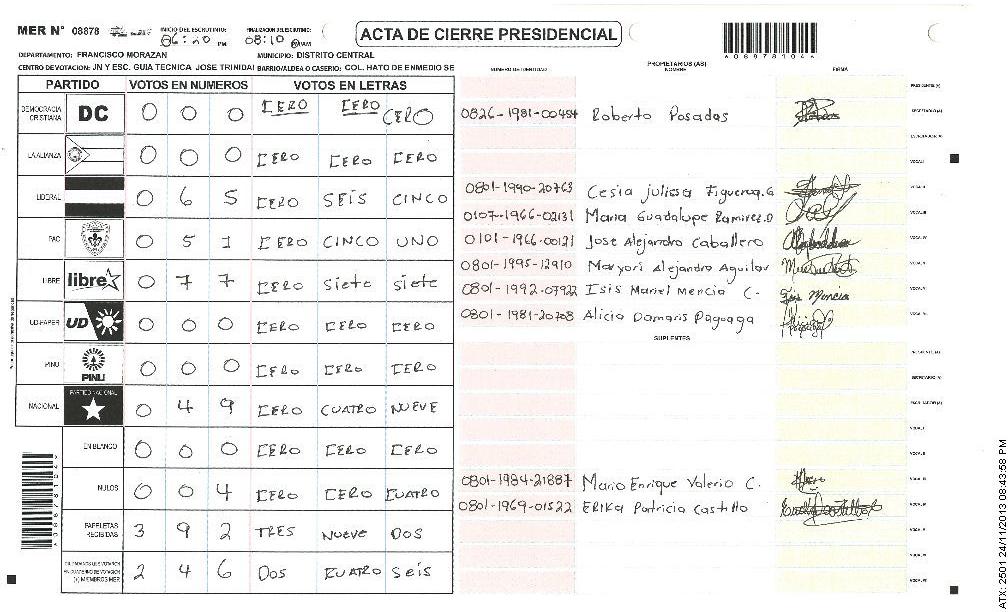 MER N° 08878 INICIO DEL ESCRUTINIO: 06:20 PM FINALIZACION DEL ESCRUTINIO: 08:10 AM ACTA DE CIERRE PRESIDENCIAL
DEPARTAMENTO: FRANCISCO MORAZAN MUNICIPIO: DISTRITO CENTRAL
CENTRO DE VOTACION: JN Y ESC. GUIA TECNICA JOSE TRINIDAI BARRIO/ALDEA O CASERIO: COL. HATO DE ENMEDIO SE
NUMERO DE IDENTIDAD PROPIETARIOS (AS) NOMBRE FIRMA
PARTIDO VOTOS EN NUMEROS VOTOS EN LETRAS
DEMOCRACIA CRISTIANA DC 0 0 0 CERO CERO CERO
LA ALIANZA 0 0 0 CERO CERO CERO
LIBERAL 0 6 5 CERO SEIS CINCO
PAC 0 5 1 CERO CINCO UNO
LIBRE libre 0 7 7 CERO Siete siete
UD-FAPER UD 0 0 0 CERO CERO CERO
PINU PINU 0 0 0 CERO CERO CERO
NACIONAL PARTIDO NACIONAL 0 4 9 CERO CUATRO NUEVE
EN BLANCO 0 0 0 CERO CERO CERO
NULOS 0 0 4 CERO CERO CUATRO
PAPELETAS RECIBIDAS 3 9 2 TRES NUEVE DOS
CIUDADANOS QUE VOTARON EN CUADERNO DE VOTACION (+) MIEMBROS MER 2 4 6 DOS CUATRO SEIS
PRESIDENTE (A)
0826-1981-00454 Roberto Posadas SECRETARIO (A)
ESCRUTADOR (A)
VOCAL I
0801-1990-20763 Cesia julissa Figueroa.G
0107-1966-02131 Maria Guadalupe Ramirez.O
0101-1966-00121 Jose Alejandro Caballero
0801-1995-12910 Maryori Alejandra Aguilar
0801-1992-07922 Isis Mariel Mencia C. Isis Mencia
0801-1981-20708 Alicia Damaris Paguaga
SUPLENTES
PRESIDENTE (A)
SECRETARIO (A)
ESCRUTADOR (A)
VOCAL I
0801-1984-21887 Mario Enrique Valerio C.
0801-1969-01522 ERIKA Patricia Castillo
ATX: 2501 24/11/2013 08:43:58 PM